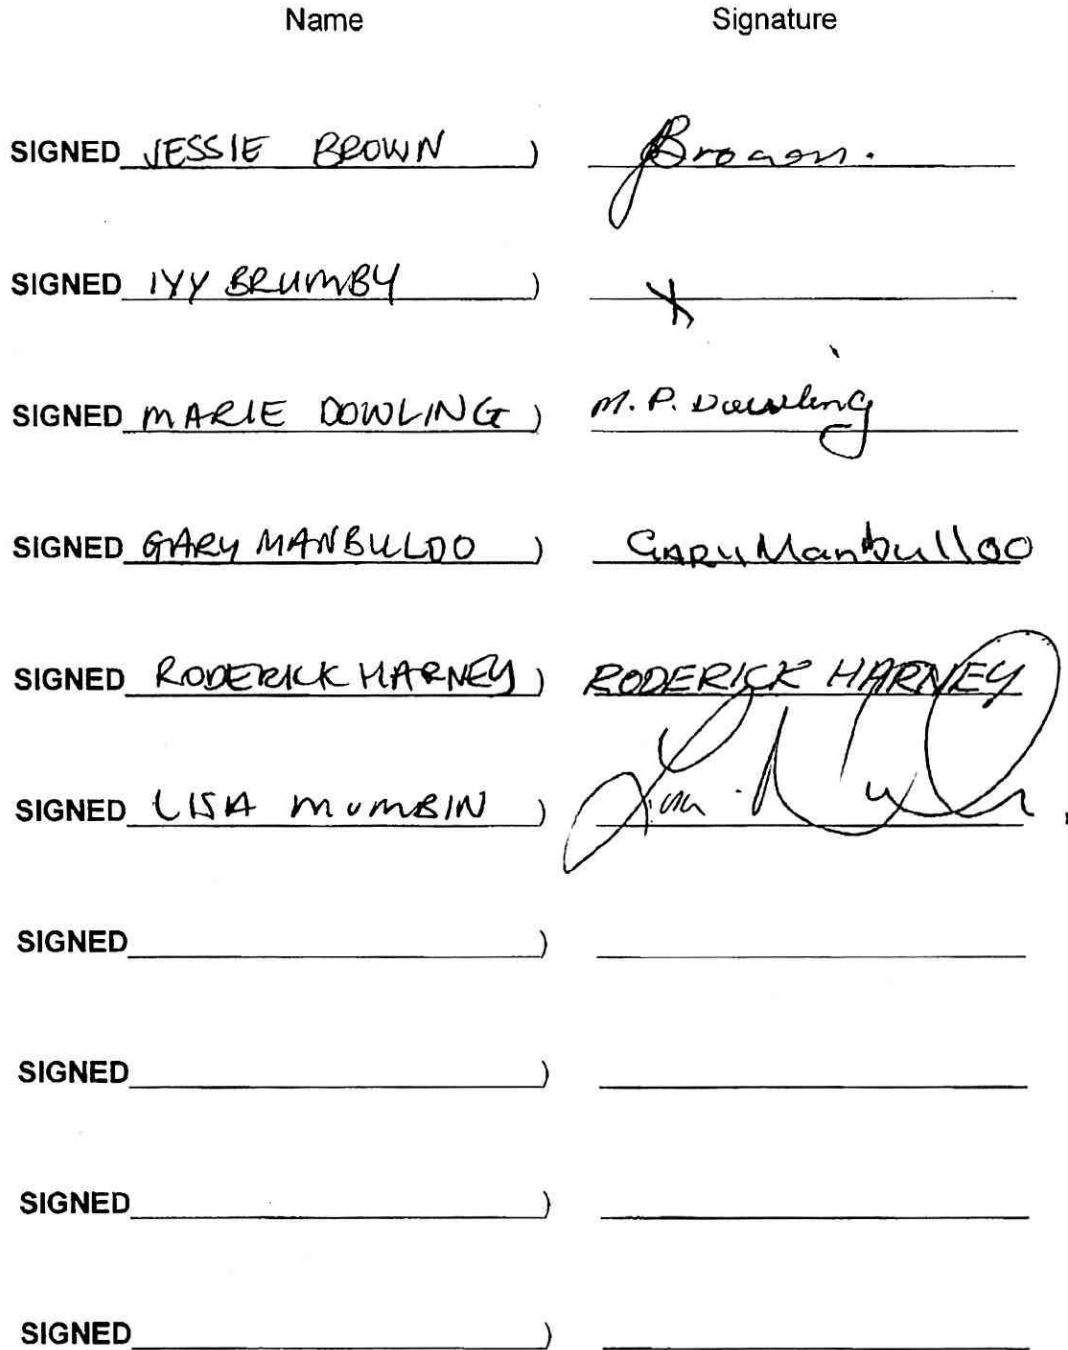 Name Signature
SIGNED JESSIE BROWN ) JBrown.
SIGNED IVY BRUMBY ) X
SIGNED MARIE DOWLING ) M. P. Dowling
SIGNED GARY MANBULLOO ) GARY Manbulloo
SIGNED RODERICK HARNEY ) RODERICK HARNEY
SIGNED LISA MUMBIN ) Lisa
SIGNED )
SIGNED )
SIGNED )
SIGNED )